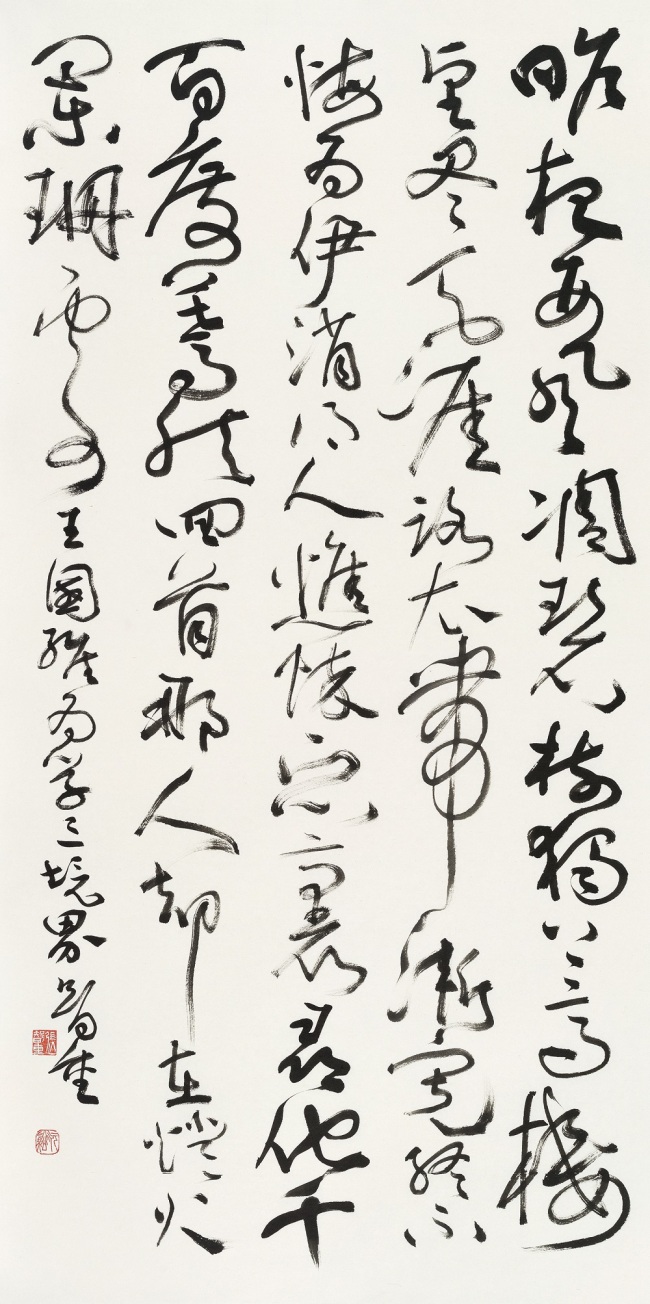 昨夜西風凋碧樹獨上高樓
望盡天涯路衣帶漸寬終不
悔為伊消得人憔悴眾裏尋他千
百度驀然回首那人却在燈火
闌珊處王國維為學三境界